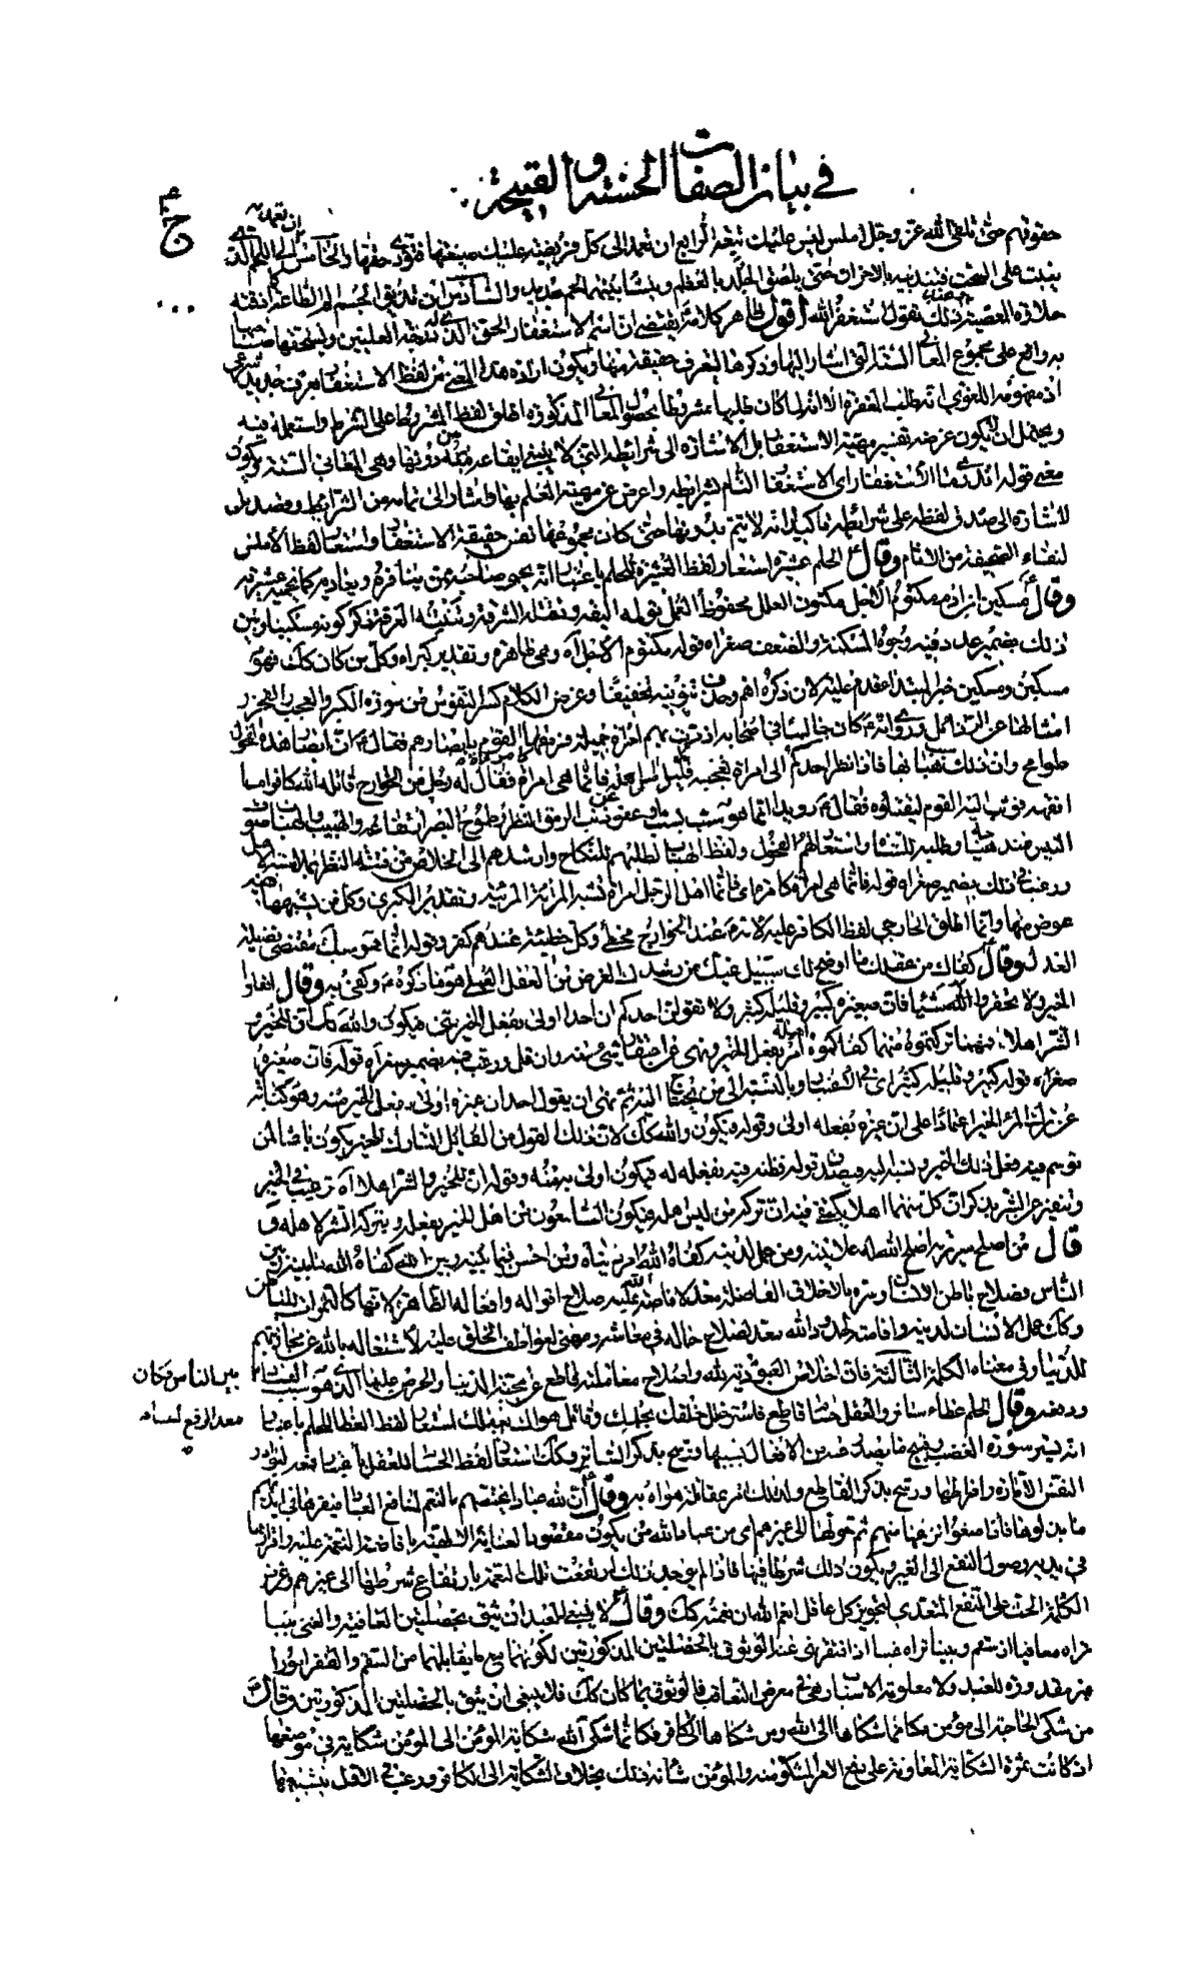 في بيان الصفات الحسنة والقبيحة
حقوقهم حتى تلقى الله عز وجل أملس ليس عليك تبعة الرابع ان تعمد الى كل فريضة عليك ضيعتها فتؤدي حقها والخامس ان تعمد الى اللحم الذي
نبت على السحت فتذيبه بالاحزان حتى يلصق الجلد بالعظم وينشا بينهما لحم جديد والسادس ان تذيق الجسم الم الطاعة كما اذقته
حلاوة المعصية فعند ذلك تقول استغفر الله اقول ظاهر كلامه يقتضي ان اسم الاستغفار الحق الذي له درجة العليين ويستحقها صاحبها
به واقع على مجموع المعاني الستة التي اشار اليها وذكرها لتعرف حقيقته منها ويكون ارادة هذا المعنى من لفظ الاستغفار بعرف جديد شرعي
اذ مفهومه اللغوي انه طلب المغفرة الا انه لما كان طلبها مشروطا بحصول المعاني المذكورة اطلق لفظ المشروط على الشرط واستعمله فيه
ويحتمل ان لا يكون غرضه تفسير مهية الاستغفار بل الاشارة الى شرائطه التي لا ينبغي ايقاعه من دونها وهي المعاني الستة ويكون
معنى قوله اتدري ما الاستغفار اي الاستغفار التام بشرايطه واعرض عن مهيته للعلم بها واشار الى تمامه من الشرايط وقصد
الاشارة الى صدق لفظه على شرائطه تاكيدا انه لا يتم بدونها حتى كان مجموعها نفس حقيقة الاستغفار واستعار لفظ الاملس
لنقاء الصحيفة من الاثام وقال الحلم عشيرة استعار لفظ العشيرة للحلم باعتبار انه يحمي صاحبه ممن ينافره ويعاديه كما تحميه عشيرته
وقال مسكين ابن ادم مكتوم الاجل مكنون العلل محفوظ العمل تؤلمه البقة وتقتله الشرقة وتنتنه العرقة ذكر كونه مسكينا وبين
ذلك بضمير عدد فيه وجوه المسكنة والضعف صغراه قوله مكتوم الاجل آه وهي ظاهرة وتقدير كبراه وكل من كان كك فهو
مسكين ومسكين خبر المبتدا مقدم عليه لان ذكره اهم وحذف تنوينه تخفيفا وغرض الكلام كسر النفوس من سورة الكبر والعجب والفخر
امثالها عن الرذائل وروي انه كان جالسا في اصحابه اذ مرت بهم امراة جميلة فرمقها القوم بابصارهم فقال ان ابصار هذه الفحول
طوامح وان ذلك سبب هبابها فاذا نظر احدكم الى امراة تعجبه فليلمس اهله فانما هي امراة كامراة فقال له رجل من الخوارج قاتله الله كافرا ما
افقهه فوثب اليه القوم ليقتلوه فقال رويدا انما هو سب بسب او عفو عن ذنب الرمق النظر وطموح البصر ارتفاعه والهبيب والهباب صوت
التيس عند هياجه وطلبه للشاة واستعار لهم الفحول ولفظ الهباب لطلبهم للنكاح وارشدهم الى الخلاص من فتنة النظر بملامسة الاهل
ورغب في ذلك بضمير صغراه قوله فانما هي امراة كامراة اي فانما اهل الرجل امراة تشبه المراة المرئية وتقدير الكبرى وكل من يشبهها ففيه
عوض منها وانما اطلق الخارجي لفظ الكافر عليه لانه عند الخوارج مخطئ وكل خطيئة عندهم كفر وقوله انما هو سب مقتضى فضيلة
العدل وقال كفاك من عقلك ما اوضح لك سبيل غيك من رشدك الغرض من العقل العملي هو ما ذكره وكفى به وقال افعلوا
الخير ولا تحقروا منه شيئا فان صغيره كبير وقليله كثير ولا تقولن احدكم ان احدا اولى بفعل الخير مني فيكون والله كك ان للخير و
الشر اهلا فمهما تركتموه منهما كفاكموه اهله امر بفعل الخير ونهى عن احتقار شيء منه وان قل ورغب فيه بضمير صغراه قوله فان صغيره
صغراه قوله كبير وقليله كثير اي في الثواب وبالنسبة الى من يحتاج اليه ثم نهى ان يقول احد ان غيره اولى بفعل الخير منه وهو كناية
عن ترك المرء الخير اعتمادا على ان غيره يفعله اولى وقوله فيكون والله كك لان ذلك القول من القائل التارك للخير يكون باعثا لمن
توهم فيه فعل ذلك الخير ونسبه اليه فيصدق قوله وظنه فيه بفعله له فيكون اولى به منه وقوله ان للخير والشر اهلا آه ترغيب في الخير
وتنفير عن الشر بذكر ان لكل منهما اهلا يكفي فيه ان تركه من ليس اهله فيكون السامعون من اهل الخير بفعله وبتركه الشر لاهله و
قال من اصلح سريرته اصلح الله له علانيته ومن عمل لدينه كفاه الله امر دنياه ومن احسن فيما بينه وبين الله كفاه الله ما بينه وبين
الناس صلاح باطن الانسان وسره بالاخلاق الفاضلة معد لافاضة الله عليه صلاح اقواله وافعاله الظاهرة لانها كالثمرات للباطن
وكك عمل الانسان لدينه واقامته لحدود الله معد لصلاح حاله في معاشه ومهيئ لعواطف الخلق عليه لاشتغاله بالله عن مجاذبتهم
للدنيا وفي معناه الكلمة الثالثة فان اخلاص العبودية لله واصلاح معاملته قاطع عن محبة الدنيا والحرص عليها الذي هو سبب الفساد
بين الناس فكان
معد الرفع لفساده
ودفعه وقال الحلم غطاء ساتر والعقل حسام قاطع فاستر خلل خلقك بحلمك وقاتل هواك بعقلك استعار لفظ الغطاء للحلم باعتبار
انه يستر سورة الغضب وقبح ما يصدر عنه من الافعال بسببها ورشح بذكر الساتر وكك استعار لفظ الحسام للعقل باعتبار قمعه لبوادر
النفس الامارة وافراطها ورشح بذكر القاطع ولذلك امر بمقاتلة هواه به وقال ان لله عبادا يختصهم بالنعم لمنافع العباد فيقرها في ايديهم
ما بذلوها فاذا منعوها نزعها منهم ثم حولها الى غيرهم اي من عباد الله من يكون مقصودا لعناية الالهية بافاضة النعمة عليه واقرارها
في يديه وصول النفع الى الغير ويكون ذلك شرطا فيها فاذا لم يوجد ذلك ارتفعت تلك النعمة بارتفاع شرطها الى غيرهم وغرض
الكلمة الحث على النفع المتعدي لتجويز كل عاقل انعم الله ان نعمته كك وقال لا ينبغي للعبد ان يثق بخصلتين العافية والغنى بينا
تراه معافيا اذ سقم وبينا تراه غنيا اذ افتقر نهى عن الوثوق بالخصلتين المذكورتين لكونهما مع ما يقابلهما من السقم والفقر امورا
غير مقدورة للعبد ولا معلومة الاسباب فهي في معرض التعاقب فالوثوق بما كان كك فلا ينبغي ان يثق بالخصلتين المذكورتين وقال
من شكى الحاجة الى مؤمن فكانما شكاها الى الله ومن شكاها الى كافر فكانما شكى الله شكاية المؤمن الى المؤمن شكاية في موضعها
اذ كانت ثمرة الشكاية المعاونة على دفع الامر المشكو منه والمؤمن شانه ذلك بخلاف الشكاية الى الكافر ورغب في الاول بتشبيهها